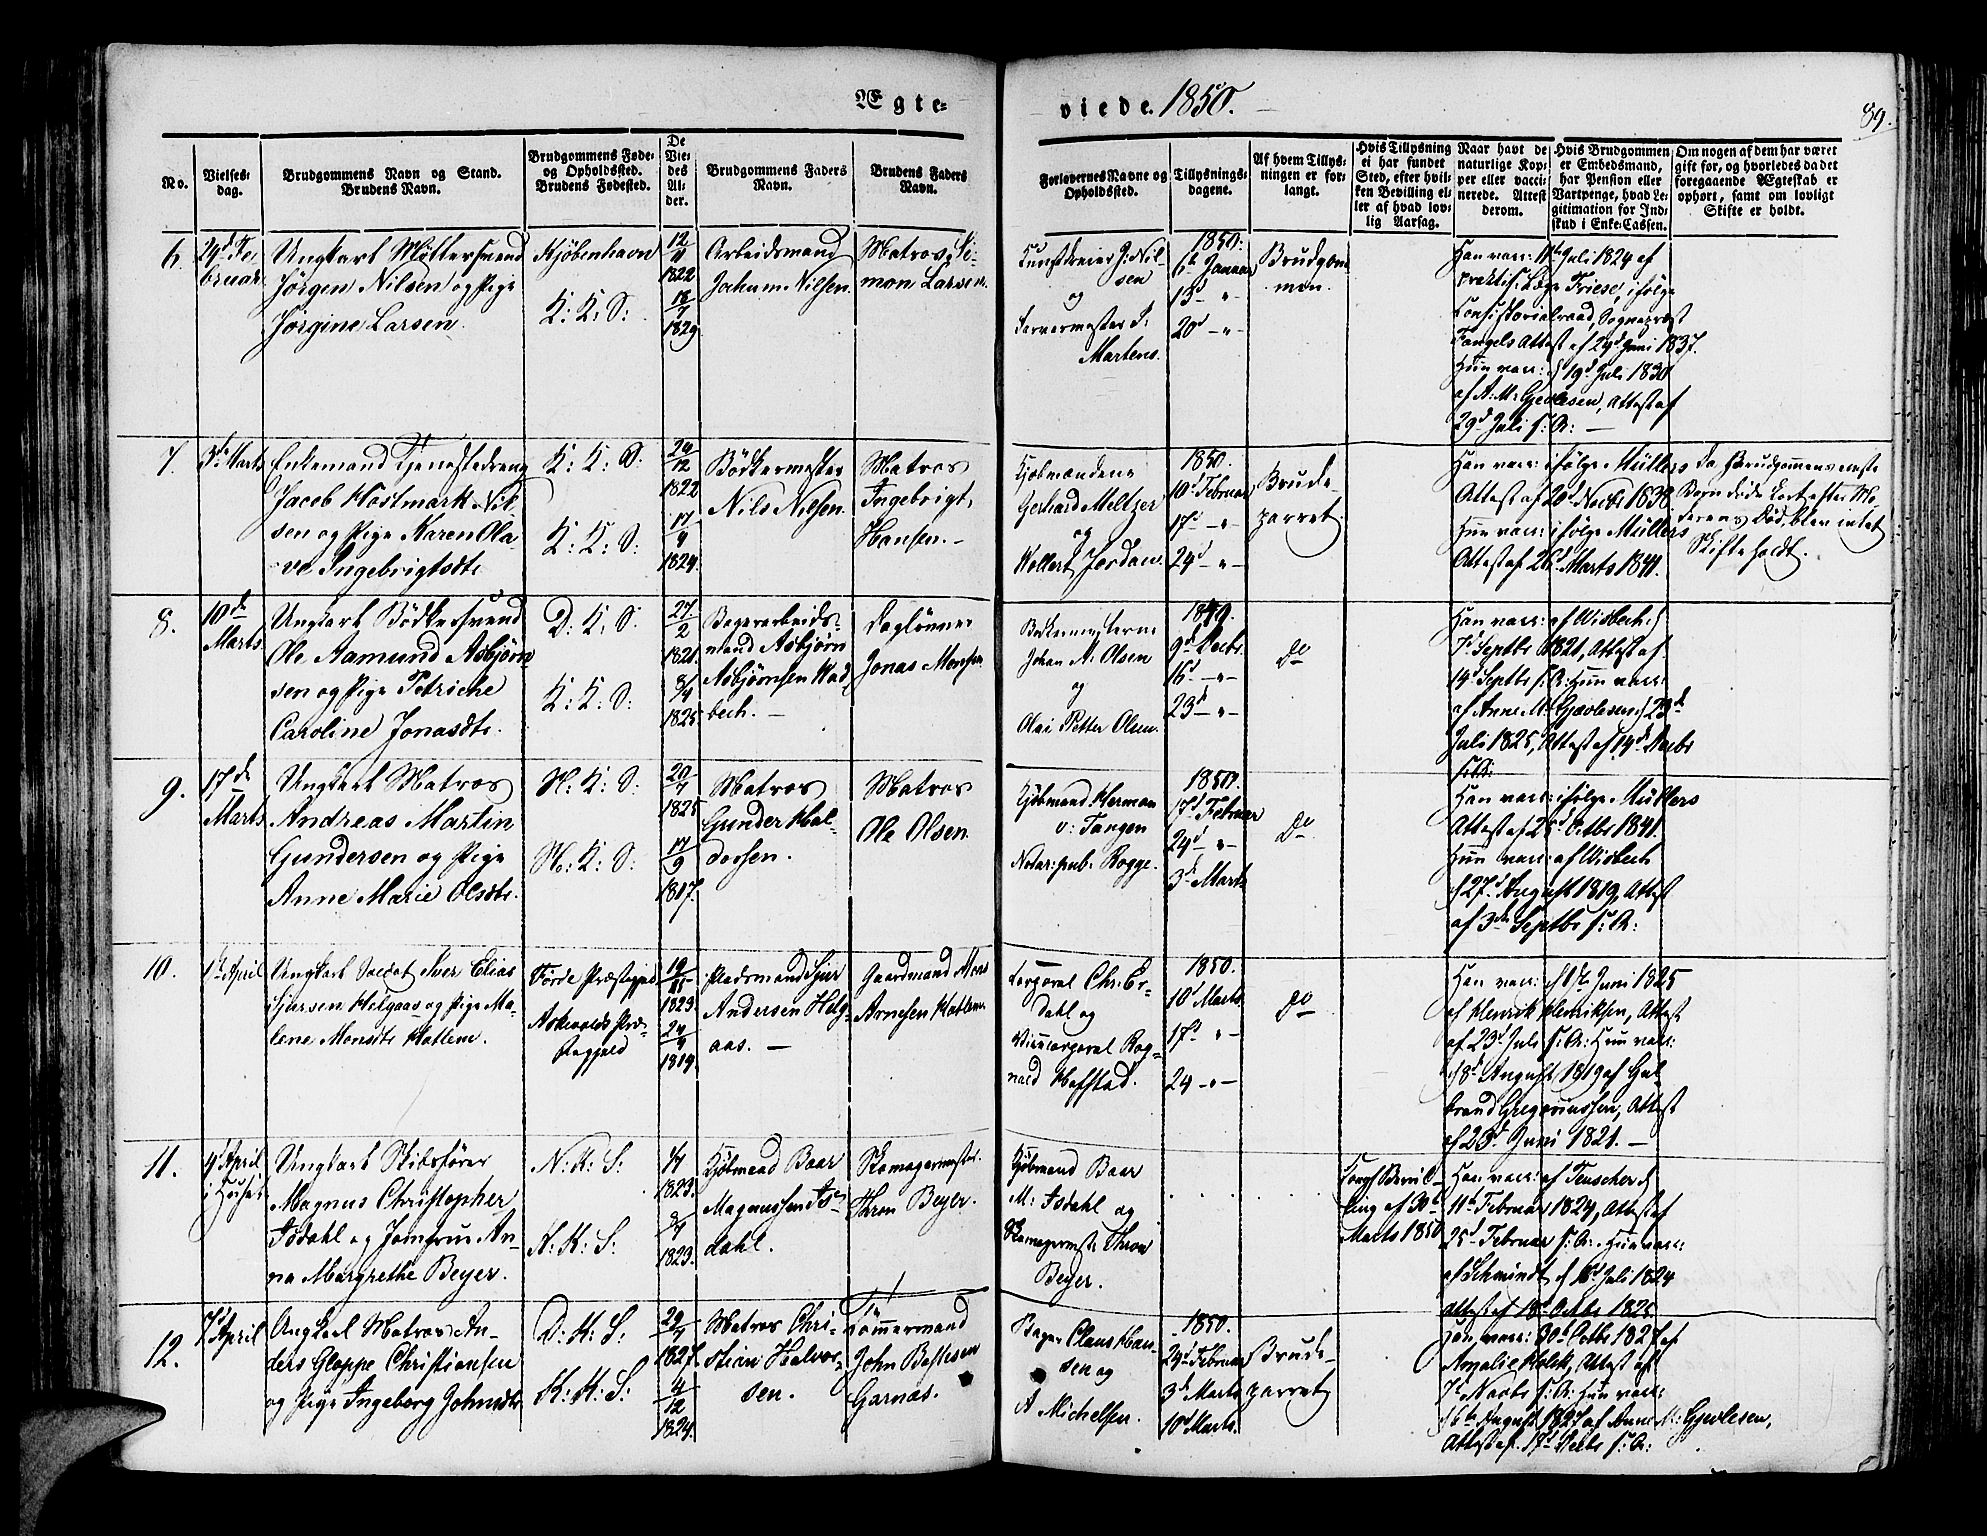 Ægte-
viede. 1850.
89.
No.
Vielses-
dag.
Brudgommens Navn og Stand.
Brudens Navn.
Brudgommens Føde-
og Opholdssted.
Brudens Fødested.
De
Vie-
des
Al-
der.
Brudgommens Faders
Navn.
Brudens Faders
Navn.
Forlovernes Navne og
Opholdssted.
Tillysnings-
dagene.
Af hvem Tillys-
ningen er for-
langt.
Hvis Tillysning
ei har fundet
Sted, efter hvil-
ken Bevilling el-
ler af hvad lov-
lig Aarsag.
Naar havt de
naturlige Kop-
per eller vacci-
nerede. Attest
derom.
Hvis Brudgommen
er Embedsmand,
har Pension eller
Vartpenge, hvad Le-
gitimation for Ind-
skud i Enke-Cassen.
Om nogen af dem har været
gift før, og hvorledes da det
foregaaende Ægteskab er
ophørt, samt om lovligt
Skifte er holdt.
6.
24d Fe-
bruar
Ungkarl Møllersvend
Jørgen Nilsen og Pige
Jørgine Larsen.
Kjøbenhavn
K: K: S:
12/11
1822
18/7
1829
Arbeidsmand
Jahum Nilsen.
Matros Si-
mon Larsen.
Kunstdreier J: Nil-
sen
og
Farvermester S:
Martens.
1850:
6te Januar
13d - " -
20d - " -
Brudgom
men.
Han vacc: 11te Juli 1824 af
praktis: Læge Friese, ifølge
Consistorialraad, Sognepræst
Tangels Attest af 29d Juni 1837.
Hun vacc: d 19d Juli 1830
af A: M: Gjevlesen, Attest af
29d Juli s: A: —
7.
3de Marts
Enkemand Tjenestedreng
Jacob Hostmark Nil-
sen og Pige Karen Ola-
ve Ingebrigtsdtr
K: K: S:
K: K: S:
24/12
1822
17/9
1824.
Bødkermester
Nils Nilsen.
Matros
Ingebrigt
Hansen. -
Kjøbmændene
Gerhard Meltzer
og
Wollert Jordan.
1850.
10d Februar
17d - " -
24d - " -
Brude
parret.
Han vacc: ifølge Müllers
Attest af 20d Novbr 1838
Hun vacc: ifølge Müllers
Attest af 26d Marts 1841.
Da Brudgommens eneste
Barn døde kort efter Mo-
derens Død, blev intet
Skifte holdt.
8.
10de
Marts
Ungkarl Bødkersvend
Ole Aamund Asbjørn
sen og Pige Petriche
Caroline Jonasdtr.
D: K: S:
K: K: S:
27/2
1821.
8/4
1825
Bagerarbeids-
mand Asbjørn
Asbjørnsen Wad
bech. —
Daglønner
Jonas Monsen
Bøkermesterne
Johan N. Olsen
og
Olai Petter Olsen.
1849.
9d Decbr
16d - " -
23d - " -
Do
Han vacc: af Wisbech d
7d Septbr 1821, Attest af
14d Septbr s: A: Hun vacc:
af Anne M: Gjævlesen d 23de
Juli 1825, Attest af 14d Decbr
s: A:
9.
17de
Marts
Ungkarl Matros
Andreas Martin
Gundersen og Pige
Anne Marie Olsdtr.
N: K: S:
N: K: S:
20/7
1825
17/9
1817.
Matros
Gunder Hal-
dorsen.
Matros
Ole Olsen
Kjøbmand Herman
v: Tangen
Notar: pub: Rogge.
1850.
17d Februar
24d - " -
3d Marts
Do
Han vacc: ifølge Müllers
Attest af 25d Octbr 1841.
Hun vacc: af Wisbech
d 27d August 1819, Attest
af 3de Septbr s: A:
10.
1te April
Ungkarl Soldat Iver Elias
Sjursen Helgaas og Pige Ma-
lene Monsdtr Hatlem.
Førde Præstegjeld
Askevolds Præ-
stegjeld
1823
24/4
1819.
Pladsmand Sjur
Andersen Helg-
aas. —
Gaardmand Mons
Arnesen Hatlem
Corporal Chr: Er-
dahl og
Vicecorporal Rog-
nald Hafstad.
1850.
10d Marts
17d - " -
24 - " -
Do
Han vacc: d 10de Juni 1825
af Henrik Henriksen, Attest
af 23d Juli s: A: Hun vacc:
d 8d August 1819 af Gul-
brand Gregoriussen, Attest
af 23d Juni 1821. —
11.
4d April
i Huset
Ungkarl Skibsfører
Magnus Christopher
Isdahl og Jomfrue An-
na Margrethe Beyer.
N: K: S:
K: K: S:
1823.
1823.
Kjøbmand Baar
Magnussen Is-
dahl.
Skomagermester.
Thron Beyer.
Kjøbmand Baar
M: Isdahl og
Skomagermestr Thron
Beyer.
Kongl Bevil-
ling af 30te
Marts 1850
Han vacc: af Teuscher d
11te Februar 1824, Attest af
25d Februar s: A: Hun vacc:
af Schmindt d 8d Juli 1824
Attest af 18d Octbr 1825
12.
7d April
Ungkarl Matros An-
ders Gloppe Christiansen
og Pige Ingeborg Johnsdtr
D: K: S:
K: K: S:
29/7
1827.
4/12
1824.
Matros Chri-
stian Halvor-
sen.
Tømmermand
John Bottesen
Garnæs.
Bager Claus Han-
sen og
A Michelsen.
1850.
24d Februar
3d Marts
10d Marts.
Brude-
parret
Han vacc: 30d Octbr 1827 af
Amalie Holck, Attest af
7d Novbr s: A: Hun vacc:
d 6te August 1827 af Anne M: Gjevlesen,
Attest af 17d Decbr s: A: